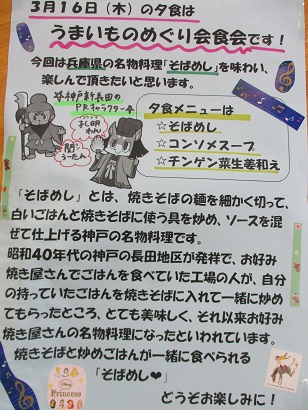 3月16日（木）の夕食は
うまいものめぐり会食会です！
今回は兵庫県の名物料理「そばめし」を味わい、
楽しんで頂きたいと思います。
神戸新長田の
PRキャラクター
夕食メニューは
☆そばめし
☆コンソメスープ
☆チンゲン菜生姜和え
「そばめし」とは、焼きそばの麺を細かく切って、
白いごはんと焼きそばに使う具を炒め、ソースを混
ぜて仕上げる神戸の名物料理です。
昭和40年代の神戸の長田地区が発祥で、お好み
焼き屋さんでごはんを食べていた工場の人が、自分
の持っていたごはんを焼きそばに入れて一緒に炒め
てもらったところ、とても美味しく、それ以来お好み
焼き屋さんの名物料理になったといわれています。
焼きそばと炒めごはんが一緒に食べられる
「そばめし❤」
どうぞお楽しみに！
Disney
Princess